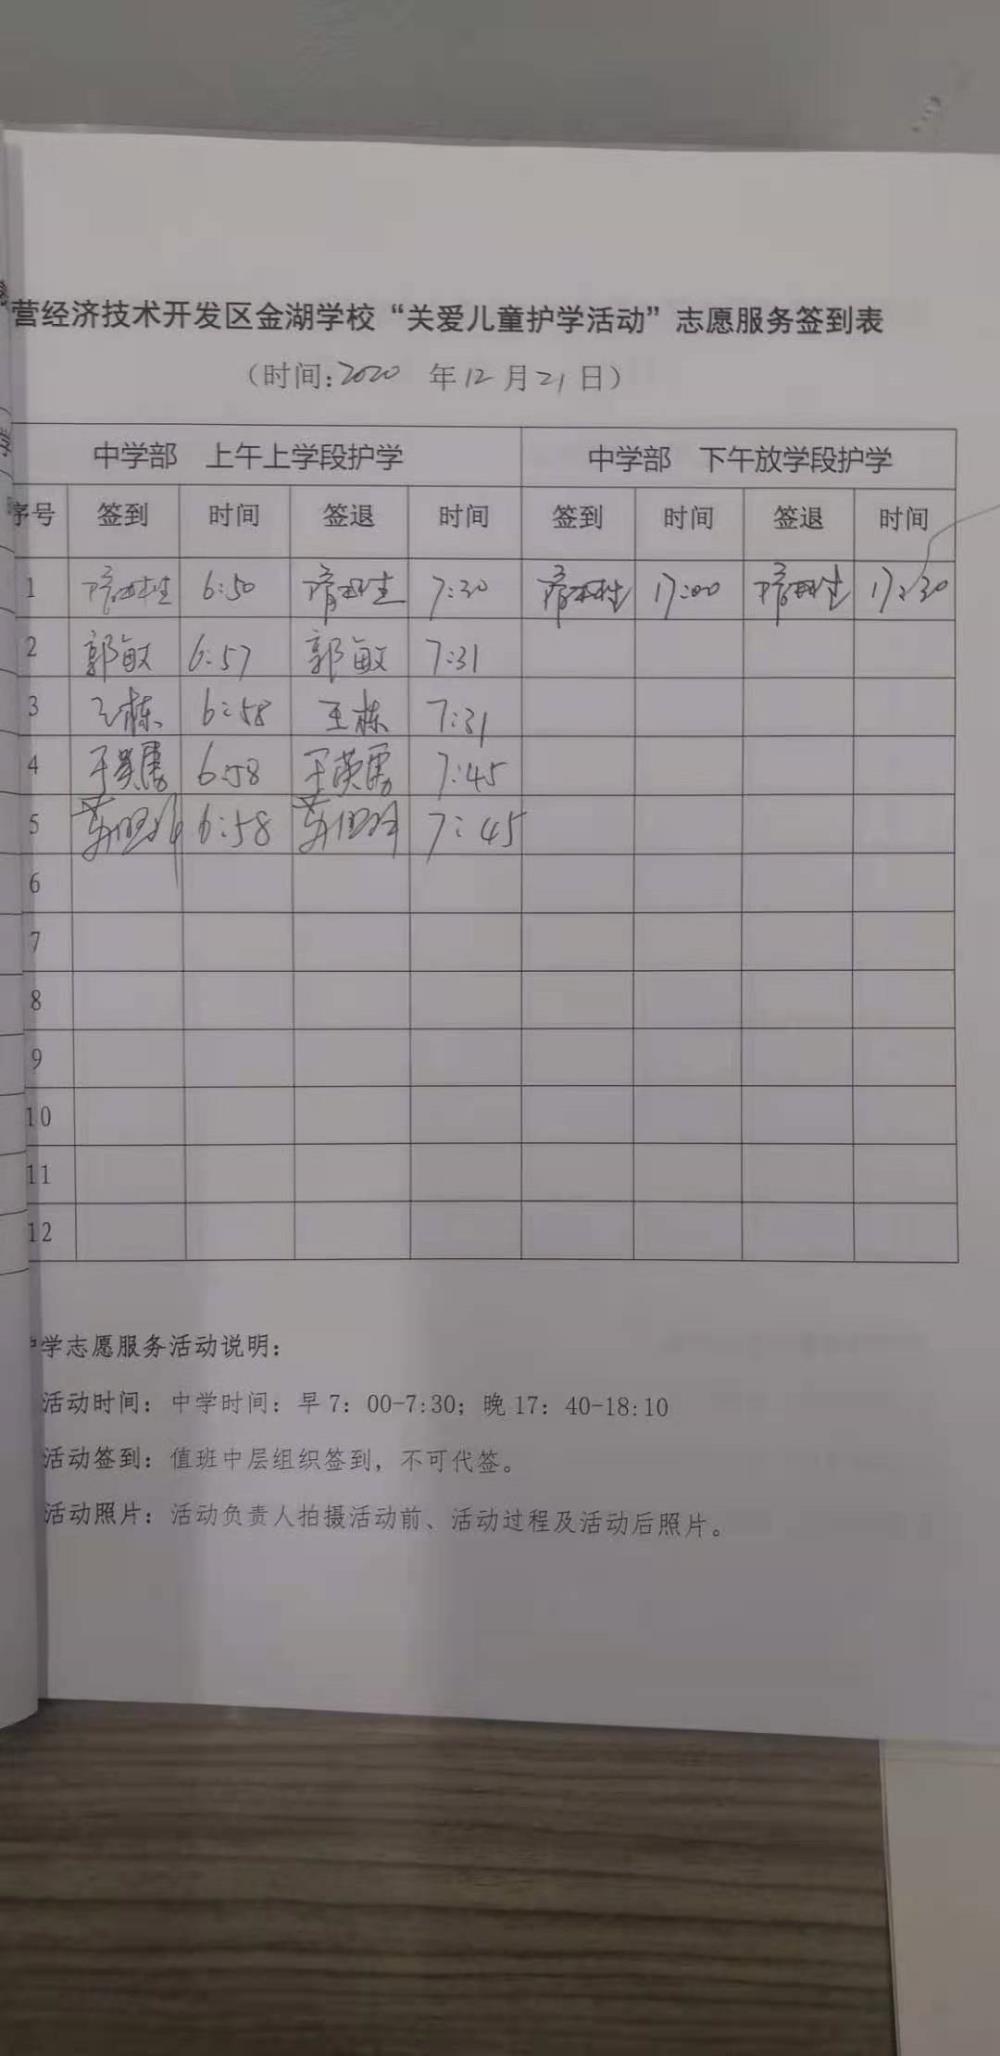 营经济技术开发区金湖学校“关爱儿童护学活动”志愿服务签到表
（时间:2020 年12月21日）
中学部 上午上学段护学 中学部 下午放学段护学
序号 签到 时间 签退 时间 签到 时间 签退 时间
1 6:50 7:30 17:00 17:30
2 郭敏 6:57 郭敏 7:31
3 王栋 6:58 王栋 7:31
4 6:58 7:45
5 6:58 7:45
6
7
8
9
10
11
12
护学志愿服务活动说明：
活动时间：中学时间：早7：00-7:30；晚17：40-18:10
活动签到：值班中层组织签到，不可代签。
活动照片：活动负责人拍摄活动前、活动过程及活动后照片。